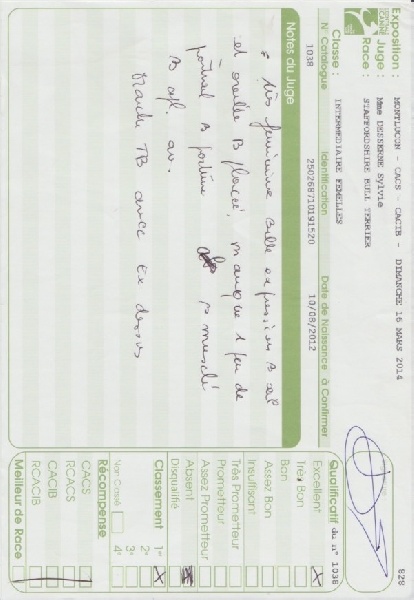 Exposition : MONTLUCON - CACS - CACIB - DIMANCHE 16 MARS 2014
828
Juge : Mme DESSERNE Sylvie
Race : STAFFORDSHIRE BULL TERRIER
CENTRALE CANINE
Classe : INTERMEDIAIRE FEMELLES
N° Catalogue
Identification
Date de Naissance à Confirmer
1038
250268710191520
10/08/2012
Notes du Juge
très féminine belle expression B
et oreille B placée, manque 1 peu de
poitrail B poitrine musclé
B
Marche TB avec
Qualificatif du n° 1038
Excellent X
Très Bon
Bon
Assez Bon
Insuffisant
Très Prometteur
Prometteur
Assez Prometteur
Absent
Disqualifié
Classement 1er X
2e
3e
Non Classé 4e
Récompense
CACS
RCACS
CACIB
RCACIB
Meilleur de Race